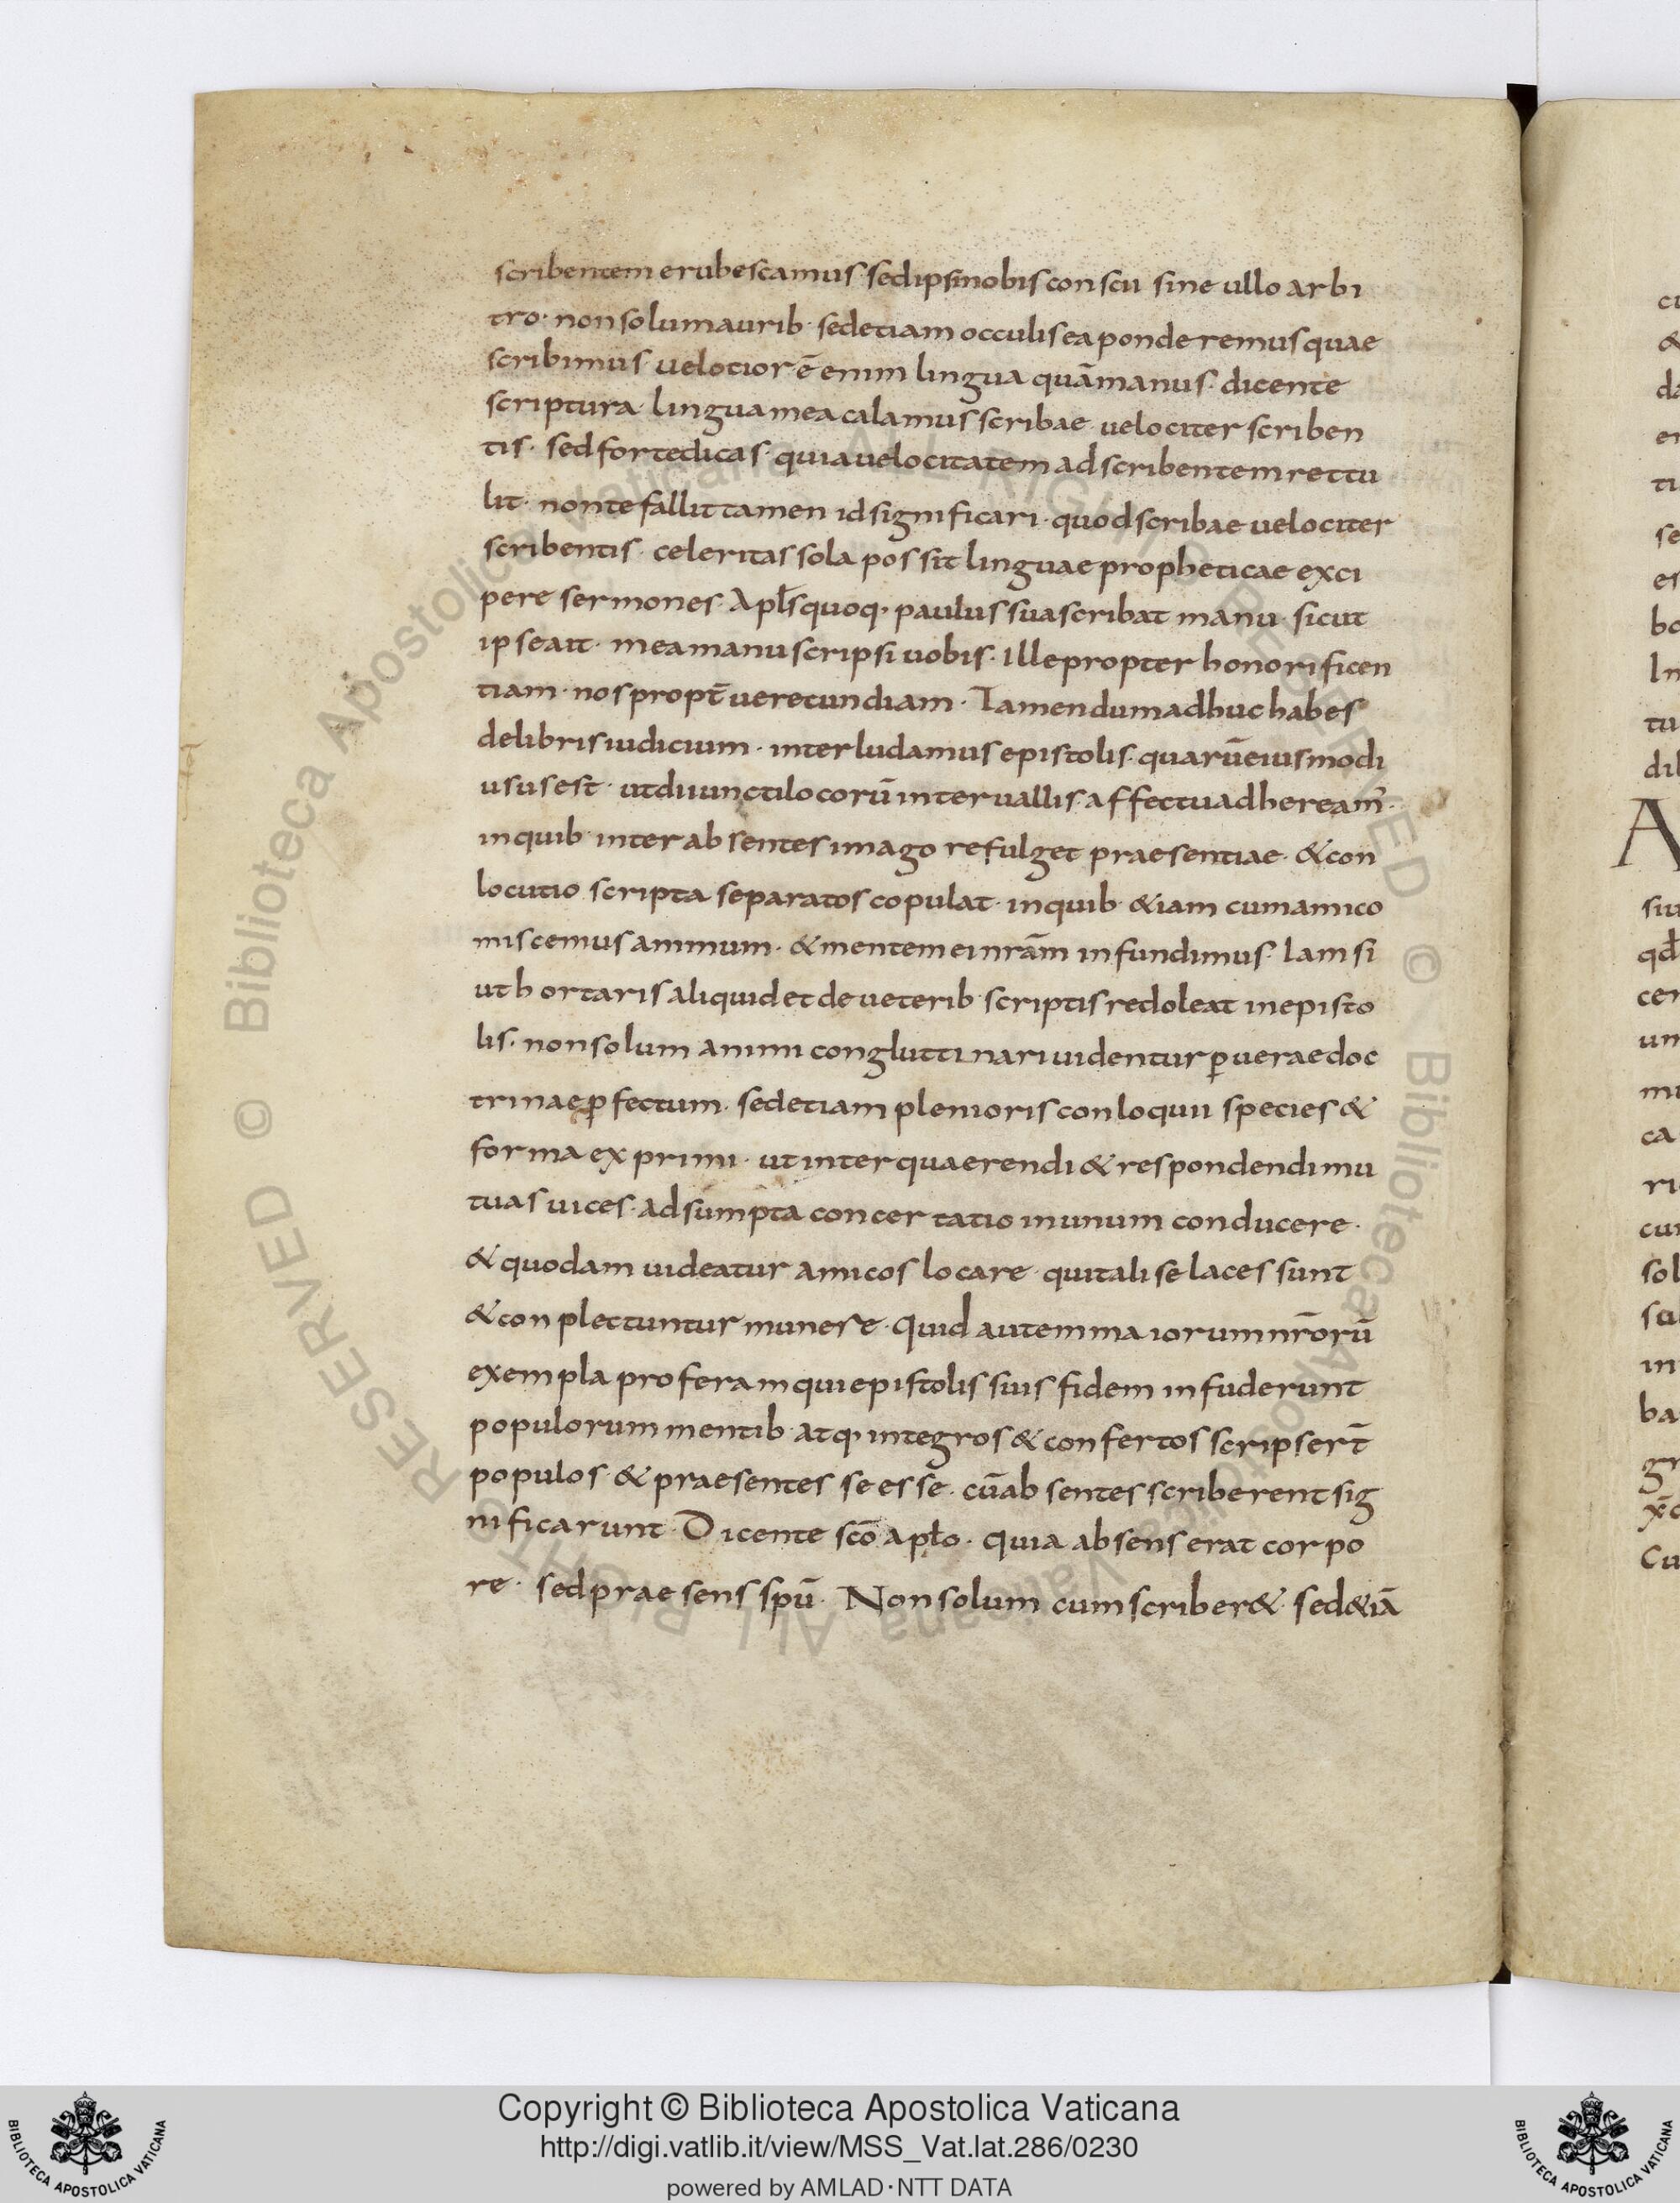 scribentem erubescamus· sed ipsi nobis conscii sine ullo arbi
tro· non solum aurib· sed etiam occulis ea ponderemus quae
scribimus velotior ē enim lingua quā manus· dicente
scriptura· lingua mea calamus scribae· velociter scriben
tis· sed forte dicas· quia velocitatem ad scribentem rettu
lit· non te fallit tamen id significari· quod scribae velociter
scribentis· celeritas sola possit linguae propheticae exci
pere sermones· Apłs quoq· paulus sua scribat manu· sicut
ipse ait· mea manu scripsi vobis· Ille propter honorificen
tiam· nos propt̄ verecundiam· Tamen dum adhuc habes
de libris iudicium· interludamus epistolis· quarū eiusmodi
usus est· ut diiuncti locorū intervallis· affectu adheream̄·
in quib· inter absentes imago refulget praesentiae· & con
locutio scripta separatos copulat· in quib· &iam cum amico
miscemus animum· & mentem ei nrām infundimus· Iam si
ut hortaris aliquid et de veterib· scriptis redoleat in episto
lis· non solum animi conglutinari videntur ꝑ verae doc
trinae ꝓfectum· sed etiam plenioris conloquii species &
forma exprimi· ut inter quaerendi & respondendi mu
tuas vices· adsumpta concertatio in unum conducere·
& quodam videatur amicos locare· qui tali se lacessunt
& conplectuntur munere· Quid autem maiorum nr̄orū
exempla proferam qui epistolis suis fidem infuderunt
populorum mentib· atq· integros & confertos scripser̄t
populos· & praesentes se esse· cū absentes scriberent sig
nificarunt· Dicente sc̄o apło· Quia absens erat corpo
re· sed praesens spū· Non solum cum scriber&· sed &iā
A
Copyright © Biblioteca Apostolica Vaticana
http://digi.vatlib.it/view/MSS_Vat.lat.286/0230
powered by AMLAD·NTT DATA
BIBLIOTECA APOSTOLICA VATICANA
BIBLIOTECA APOSTOLICA VATICANA
© Biblioteca Apostolica Vaticana ALL RIGHTS RESERVED © Biblioteca Apostolica Vaticana ALL RIGHTS RESERVED